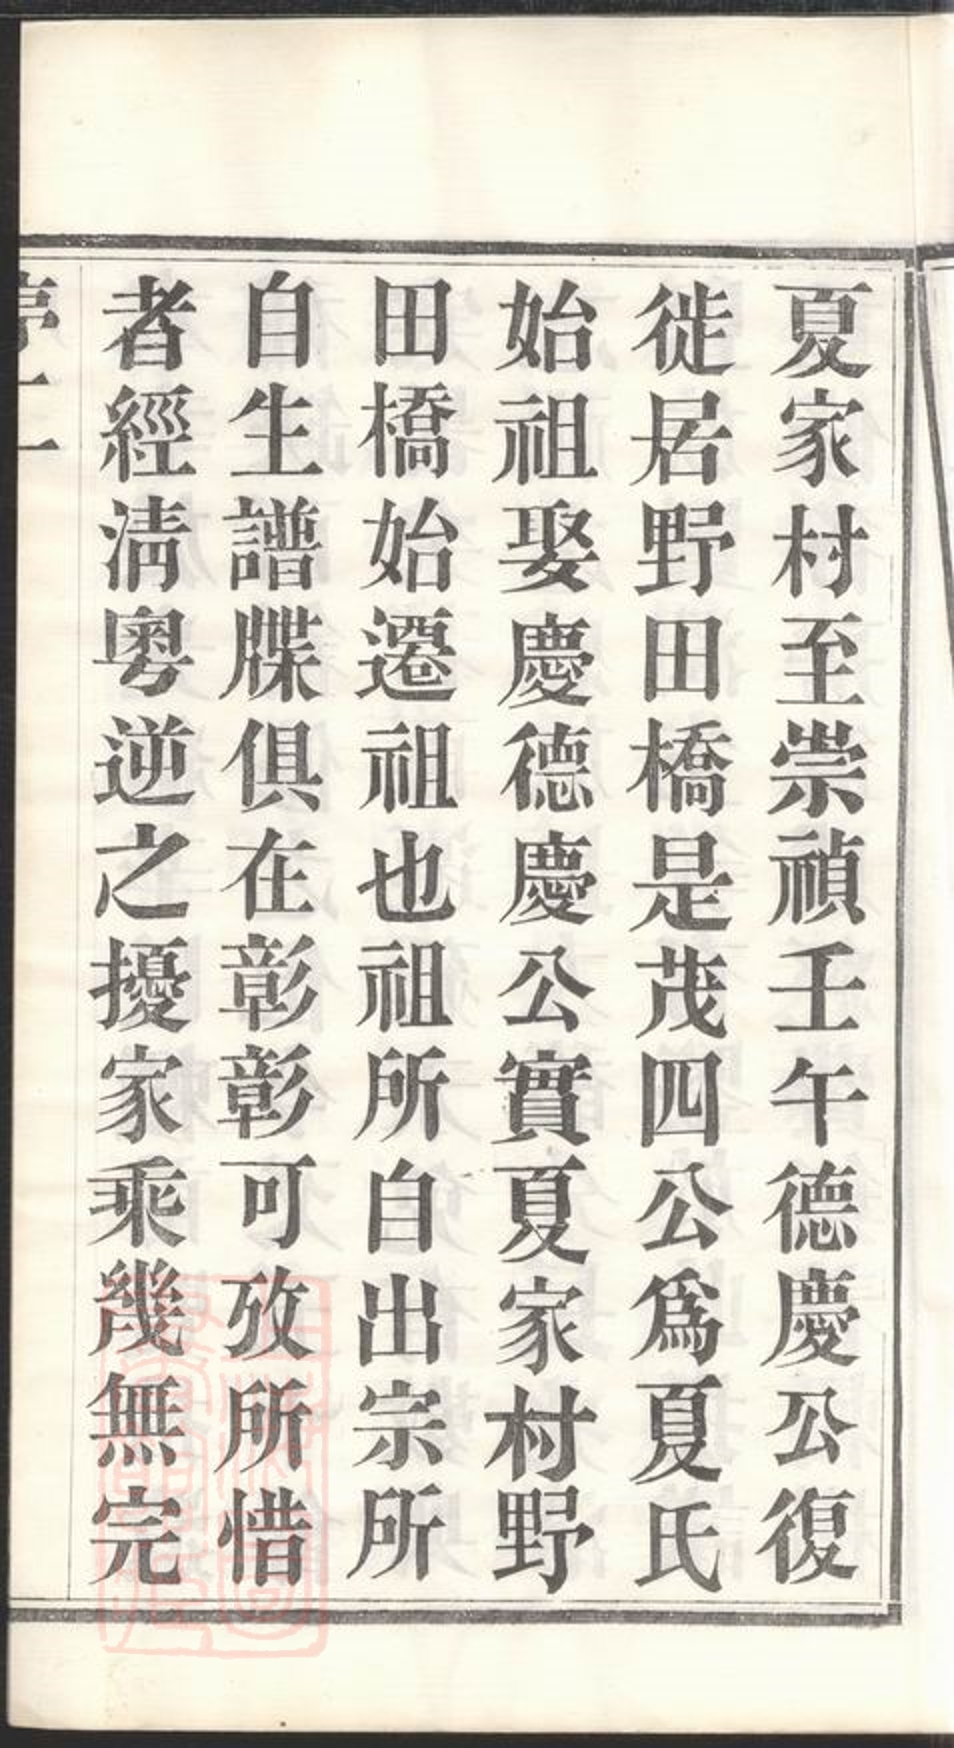 夏家村至崇禎壬午德慶公復
徙居野田橋是茂四公爲夏氏
始祖娶慶德慶公實夏家村野
田橋始遷祖也祖所自出宗所
自生譜牒俱在彰彰可攷所惜
者經淸粵逆之擾家乘幾無完